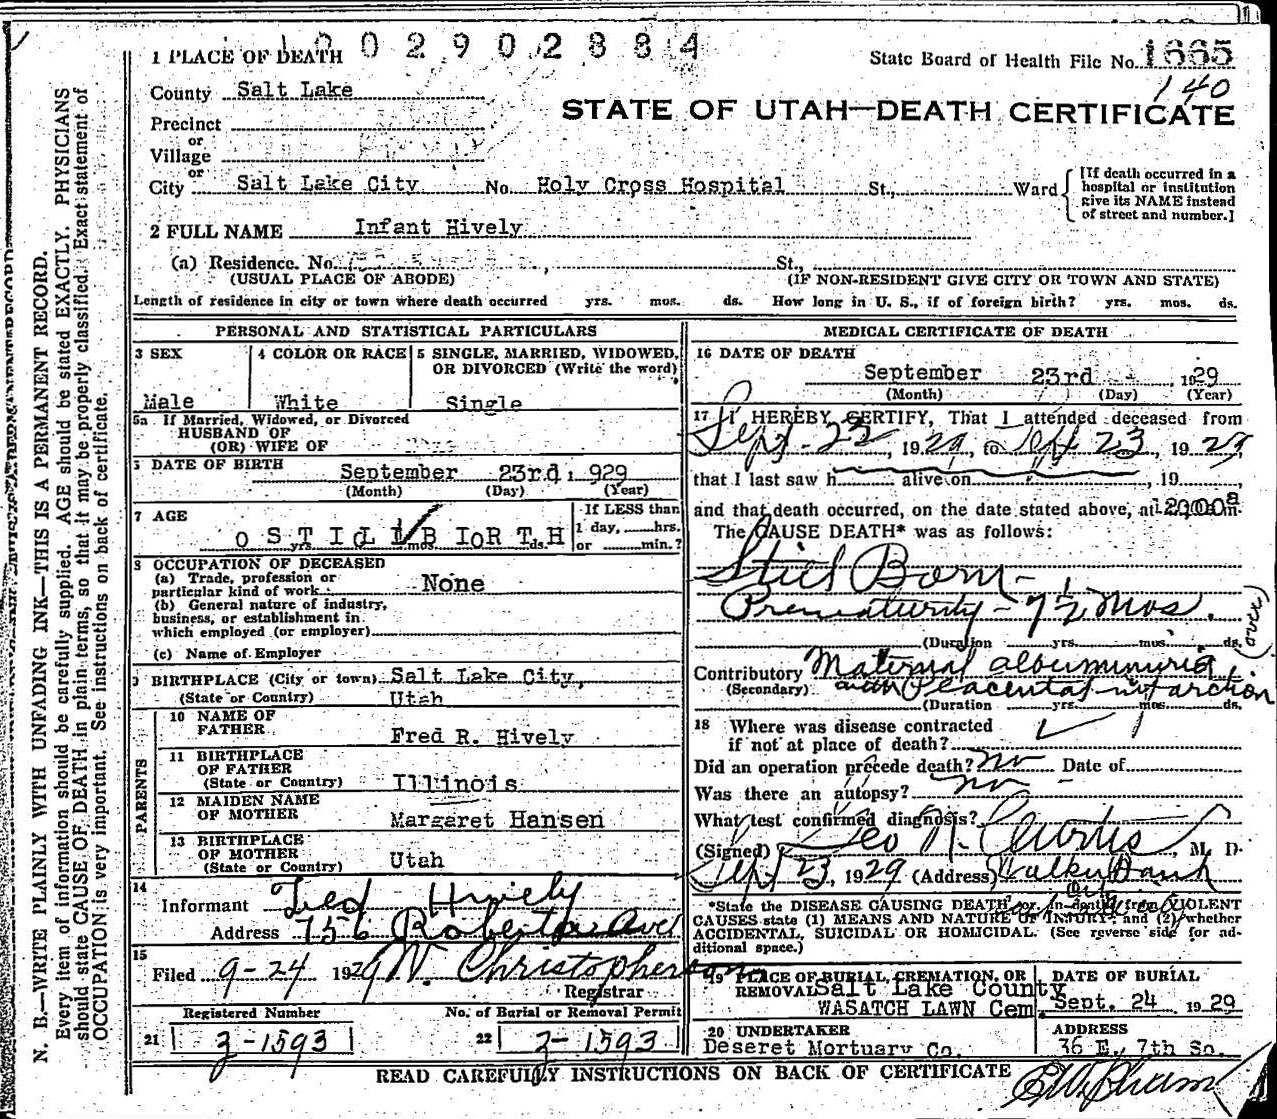 1002902884
1 PLACE OF DEATH
State Board of Health File No. 1665
140
County Salt Lake
STATE OF UTAH—DEATH CERTIFICATE
Precinct
or
Village
or
City Salt Lake City No. Holy Cross Hospital St., Ward
[If death occurred in a hospital or institution give its NAME instead of street and number.]
2 FULL NAME Infant Hively
(a) Residence. No. St.,
(USUAL PLACE OF ABODE) (IF NON-RESIDENT GIVE CITY OR TOWN AND STATE)
Length of residence in city or town where death occurred yrs. mos. ds. How long in U. S., if of foreign birth? yrs. mos. ds.
PERSONAL AND STATISTICAL PARTICULARS
3 SEX 4 COLOR OR RACE 5 SINGLE, MARRIED, WIDOWED,
OR DIVORCED (Write the word)
Male White Single
5a If Married, Widowed, or Divorced
HUSBAND OF
(OR) WIFE OF
DATE OF BIRTH
September 23rd, 929
(Month) (Day) (Year)
7 AGE If LESS than
1 day, hrs.
or min.?
STILLBIRTH yrs. mos. ds.
8 OCCUPATION OF DECEASED
(a) Trade, profession or
particular kind of work None
(b) General nature of industry,
business, or establishment in
which employed (or employer)
(c) Name of Employer
9 BIRTHPLACE (City or town) Salt Lake City,
(State or Country) Utah
PARENTS
10 NAME OF
FATHER Fred R. Hively
11 BIRTHPLACE
OF FATHER
(State or Country) Illinois
12 MAIDEN NAME
OF MOTHER Margaret Hansen
13 BIRTHPLACE
OF MOTHER
(State or Country) Utah
14
Informant Fred Hively
Address 756 Roberta Ave
15
Filed 9-24 1929 W. Christopherson
Registrar
Registered Number No. of Burial or Removal Permit
21 3-1593 22 3-1593
MEDICAL CERTIFICATE OF DEATH
16 DATE OF DEATH
September 23rd, 1929
(Month) (Day) (Year)
17 I HEREBY CERTIFY, That I attended deceased from
Sept-22, 1929, to Sept 23 1929
that I last saw h alive on , 19 ,
and that death occurred, on the date stated above, at 12:00 a m.
The CAUSE DEATH* was as follows:
Still Born-
Prematurity- 7 1/2 Mos.
(over)
(Duration yrs. mos. ds.
Contributory Maternal albuminuria
(Secondary) with Placental infarction
(Duration yrs. mos. ds.
18 Where was disease contracted
if not at place of death?
Did an operation precede death? No Date of
Was there an autopsy? no -
What test confirmed diagnosis?
(Signed) Leo N. Curtis, M. D.
Sept 23, 1929 (Address) Walker Bank
*State the DISEASE CAUSING DEATH, or, in deaths from VIOLENT
CAUSES state (1) MEANS AND NATURE OF INJURY, and (2) whether
ACCIDENTAL, SUICIDAL OR HOMICIDAL. (See reverse side for ad-
ditional space.)
19 PLACE OF BURIAL, CREMATION, OR
REMOVAL Salt Lake County
WASATCH LAWN Cem.
DATE OF BURIAL
Sept. 24 1929
20 UNDERTAKER ADDRESS
Deseret Mortuary Co. 36 E. 7th So.
READ CAREFULLY INSTRUCTIONS ON BACK OF CERTIFICATE
N. B.—WRITE PLAINLY WITH UNFADING INK—THIS IS A PERMANENT RECORD.
Every item of information should be carefully supplied. AGE should be stated EXACTLY. PHYSICIANS
should state CAUSE OF DEATH in plain terms, so that it may be properly classified. Exact statement of
OCCUPATION is very important. See instructions on back of certificate.